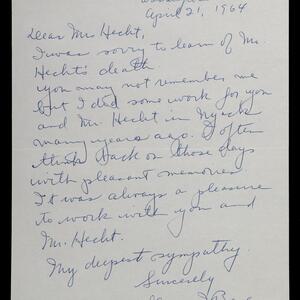 April 21, 1964
Dear Mrs Hecht,
I was sorry to learn of Mr.
Hecht's death
you may not remember me
but I did some work for you
and Mr. Hecht in Nyack
many years ago. I often
think back on those days
with pleasant memories
It was always a pleasure
to work with you and
Mr. Hecht.
My deepest sympathy.
Sincerely